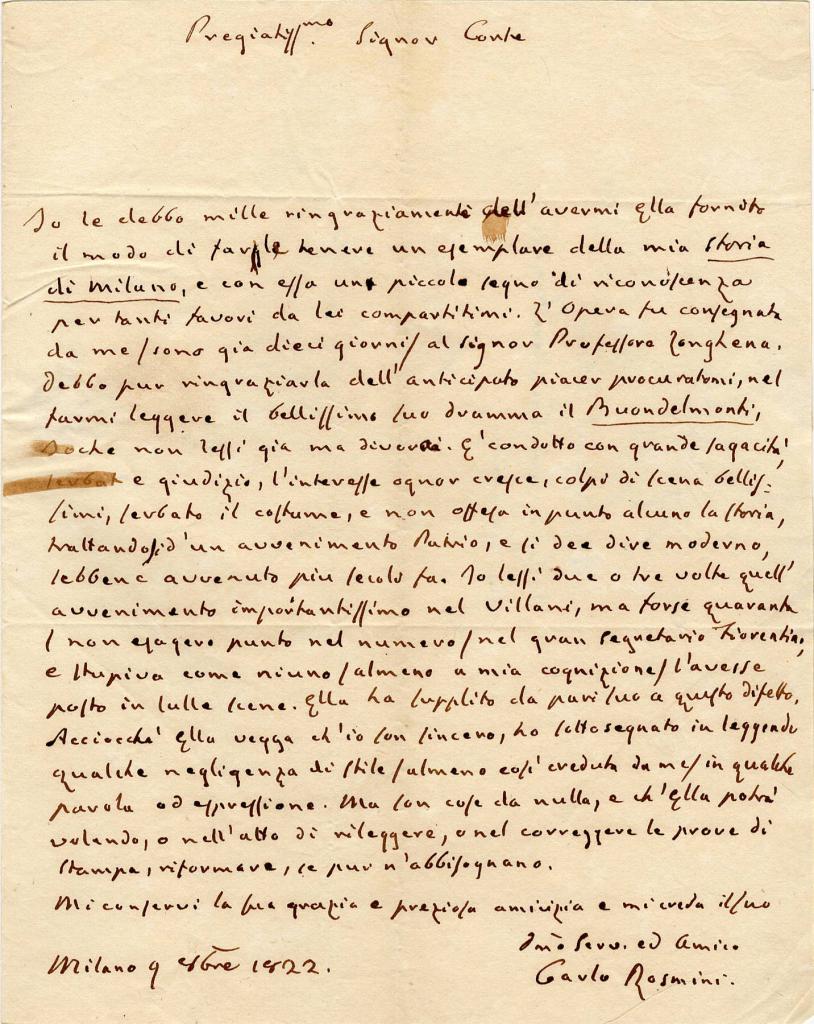 Pregiatissmo. Signor Conte
Io le debbo mille ringraziamenti dell'avermi Ella fornito
il modo di farle tenere un esemplare della mia Storia
di Milano, e con essa un piccolo segno di riconoscenza
per tanti favori da lei compartitimi. L'Opera fu consegnata
da me/sono già dieci giorni/ al Signor Professore Zonghena.
Debbo pur ringraziarla dell'anticipato piacer procuratomi, nel
farmi leggere il bellissimo suo dramma il Buondelmonti,
che non lessi già ma divorai. E' condotto con grande sagacità,
e giudizio, l'interesse ognor cresce, colpi di scena bellis-
simi, serbato il costume, e non offesa in punto alcuno la storia,
trattandosi d'un avvenimento Patrio, e si dee dire moderno,
sebbene avvenuto più secoli fa. Io lessi due o tre volte quell'
avvenimento importantissimo nel Villani, ma forse quaranta
/ non esagero punto nel numero/ nel gran Segretario Fiorentino,
e stupiva come niuno/almeno a mia cognizione/ l'avesse
posto in sulle scene. Ella ha supplito da pari suo a questo difetto.
Acciocchè Ella vegga ch'io son sincero, ho sottosegnato in leggendo
qualche negligenza di stile/almeno così creduta da me/ in qualche
parola od espressione. Ma son cose da nulla, e ch'Ella potrà
volendo, o nell'atto di rileggere, o nel correggere le prove di
stampa, riformare, se pur n'abbisognano.
Mi conservi la sua grazia e preziosa amicizia e mi creda il suo
Serv. ed Amico
Milano 9 1822.
Carlo Rosmini.